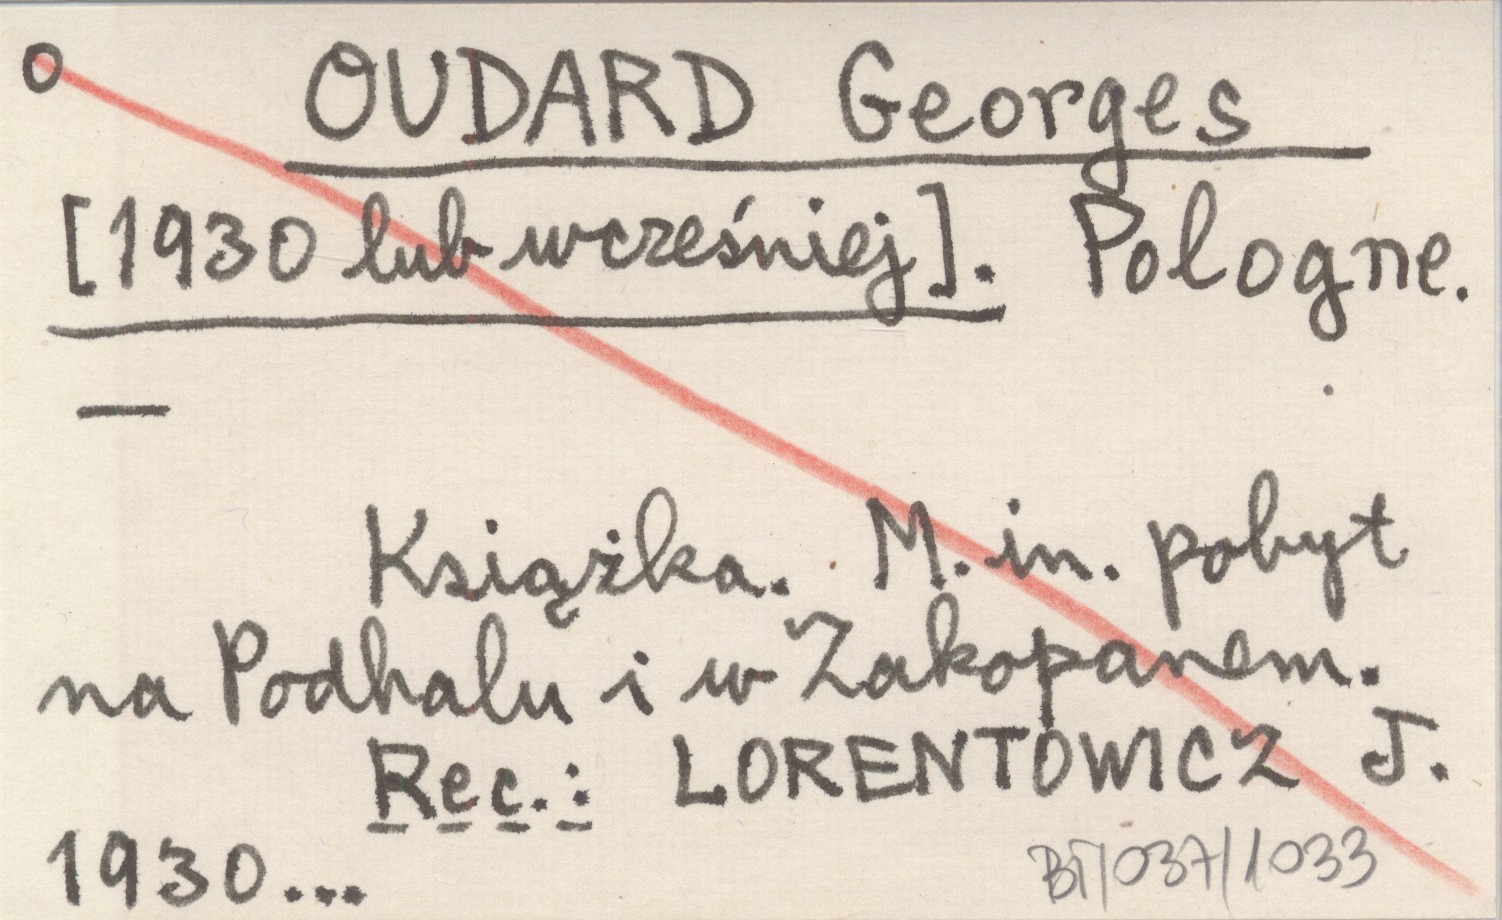 o OUDARD Georges
[1930 lub wcześniej]. Pologne.
—
Książka. M. in. pobyt
na Podhalu i w Zakopanem.
Rec.: LORENTOWICZ J.
1930...
BT/037/1033